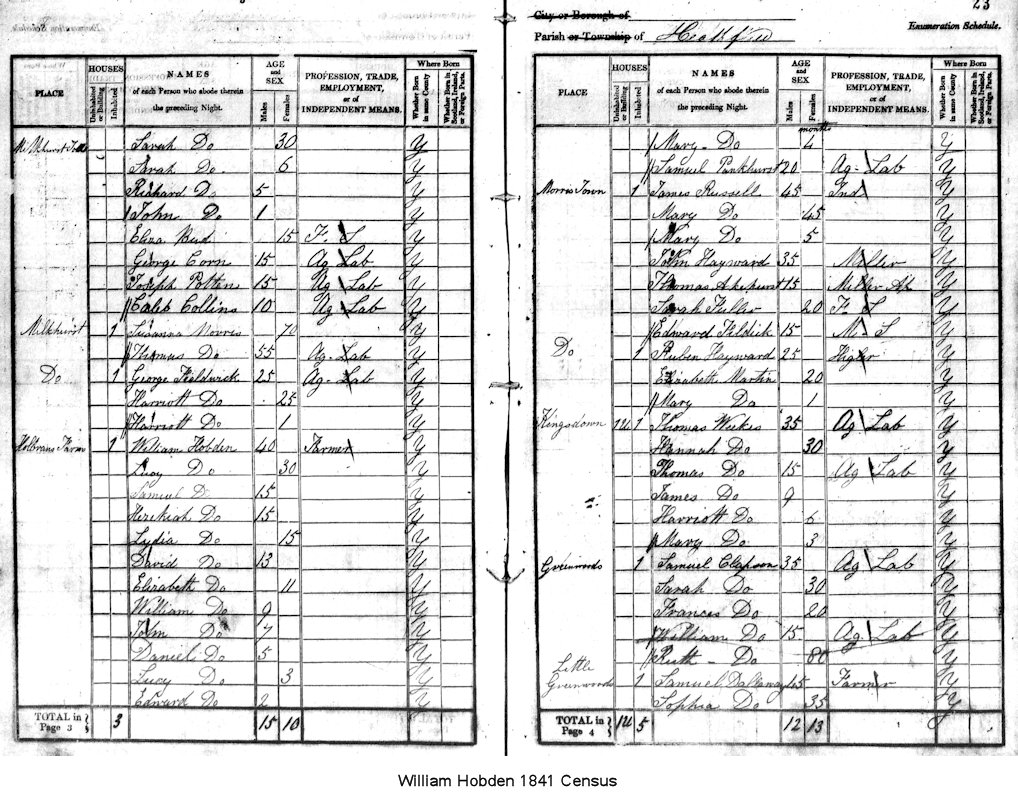 23
City or Borough of
Parish or Township of
Enumeration Schedule.
PLACE
HOUSES
Uninhabited or Building
Inhabited
NAMES
of each Person who abode therein the preceding Night.
AGE and SEX
Males
Females
PROFESSION, TRADE, EMPLOYMENT, or of INDEPENDENT MEANS.
Where Born
Whether Born in same County
Whether Born in Scotland, Ireland, or Foreign Parts.
Sarah Do 30 Y
Sarah Do 6 Y
Richard Do 5 Y
John Do 1 Y
Eliza 15 F. S Y
George Corn 15 Ag Lab Y
Joseph Potten 15 Ag Lab Y
Caleb Collins 10 Ag Lab Y
Milkhurst 1 Susanna Morris 70 Y
Thomas Do 55 Ag. Lab Y
Do 1 George 25 Ag. Lab Y
Harriott Do 25 Y
Harriott Do 1 Y
Holbrans Farm 1 William Hobden 40 Farmer Y
Lucy Do 30 Y
Samuel Do 15 Y
Hezekiah Do 15 Y
Lydia Do 15 Y
David Do 13 Y
Elizabeth Do 11 Y
William Do 9 Y
John Do 7 Y
Daniel Do 5 Y
Lucy Do 3 Y
Edward Do 2 Y
TOTAL in Page 3 3 15 10
PLACE
HOUSES
Uninhabited or Building
Inhabited
NAMES
of each Person who abode therein the preceding Night.
AGE and SEX
Males
Females
PROFESSION, TRADE, EMPLOYMENT, or of INDEPENDENT MEANS.
Where Born
Whether Born in same County
Whether Born in Scotland, Ireland, or Foreign Parts.
months
Mary Do 4 Y
Samuel Pankhurst 20 Ag. Lab Y
Morris Town 1 James Russell 45 Ind Y
Mary Do 45 Y
Mary Do 5 Y
John Hayward 35 Miller Y
Thomas Akehurst 15 Miller Ap Y
Sarah Fuller 20 F. S Y
Edward 15 M. S Y
Do 1 Ruben Hayward 25 Higler Y
Elizabeth Martin 20 Y
Mary Do 1 Y
Kingsdown 1 Thomas Weekes 35 Ag Lab Y
Hannah Do 30 Y
Thomas Do 15 Ag Lab Y
James Do 9 Y
Harriott Do 6 Y
Mary Do 3 Y
Greenwoods 1 Samuel Clapson 35 Ag Lab Y
Sarah Do 30 Y
Frances Do 20 Y
William Do 15 Ag. Lab Y
Ruth Do 80 Y
Little Greenwoods 1 Samuel Dallaway Farmer Y
Sophia Do 35 Y
TOTAL in Page 4 5 12 13
William Hobden 1841 Census